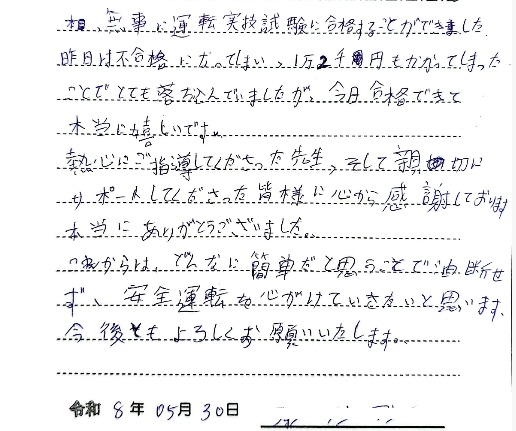 無事に運転実技試験に合格することができました
昨日は不合格になってしまい、1万2千円もかかってしまった
ことでとても落ち込んでいましたが、今日合格できて
本当に嬉しいです。
熱心にご指導してくださった先生、そして親切に
サポートしてくださった皆様に心から感謝しております
本当にありがとうございました。
これからは、どんなに簡単だと思うことでも油断せ
ず、安全運転を心がけていきたいと思います。
今後ともよろしくお願いいたします。
令和 8年 05月 30日